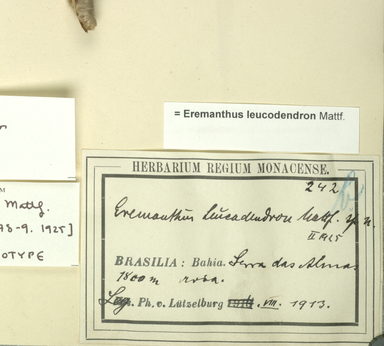 = Eremanthus leucodendron Mattf.
HERBARIUM REGIUM MONACENSE.
242
Eremanthus leucodendron Mattf. sp. n.
II 1925
BRASILIA: Bahia. Serra das Almas
1800 m rosa.
Leg. Ph. v. Lützelburg VIII. 1913.
M
Mattf.
98-9. 1925]
OTYPE